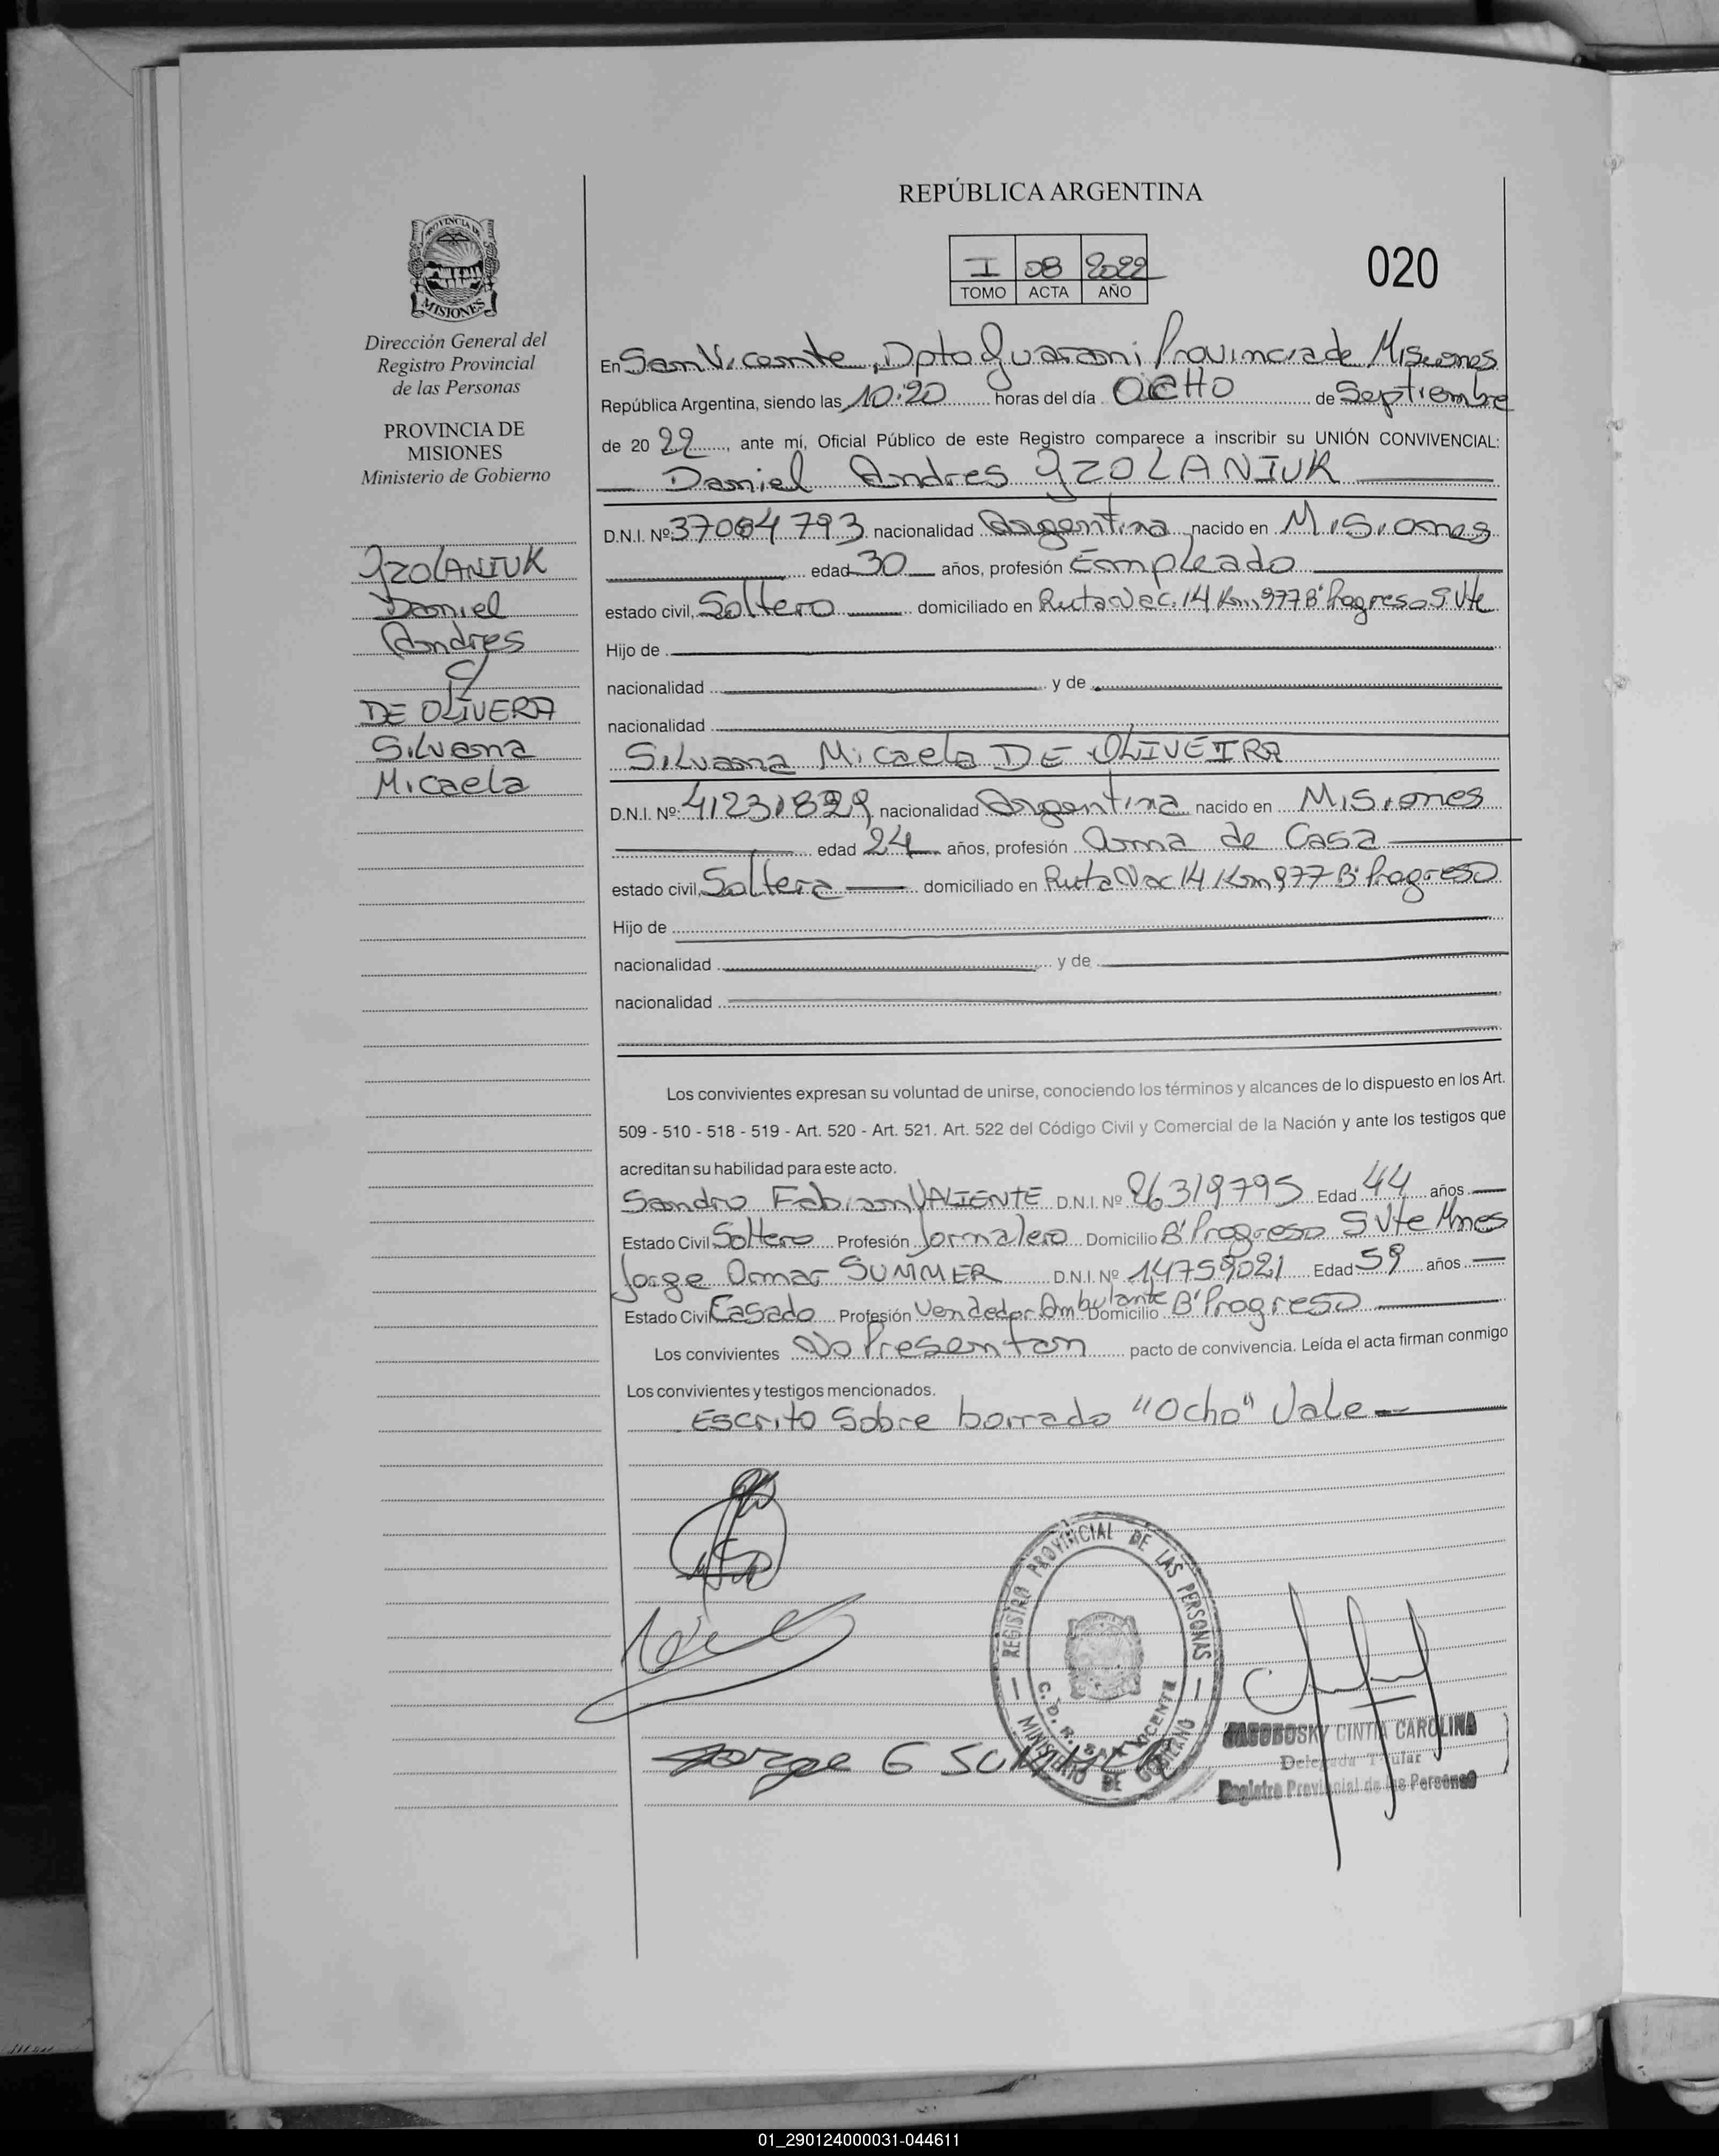 REPÚBLICA ARGENTINA
I 08 2022
TOMO ACTA AÑO
020
PROVINCIA DE
MISIONES
Dirección General del
Registro Provincial
de las Personas
PROVINCIA DE
MISIONES
Ministerio de Gobierno
YZOLANIUK
Daniel
Andres
y
DE OLIVERA
Silvana
Micaela
En San Vicente, Dpto Guarani Provincia de Misiones
República Argentina, siendo las 10:20 horas del día OCHO de Septiembre
de 20 22, ante mí, Oficial Público de este Registro comparece a inscribir su UNIÓN CONVIVENCIAL:
Daniel Andres YZOLANIUK
D.N.I. Nº 37084793 nacionalidad Argentina nacido en Misiones
edad 30 años, profesión Empleado
estado civil, Soltero domiciliado en Ruta Nac. 14 Km 977 B° Progreso S. Vte
Hijo de
nacionalidad y de
nacionalidad
Silvana Micaela DE OLIVEIRA
D.N.I. Nº: 41231829 nacionalidad Argentina nacido en Misiones
edad 24 años, profesión Ama de Casa
estado civil, Soltera domiciliado en Ruta Nac 14 Km 977 B° Progreso
Hijo de
nacionalidad y de
nacionalidad
Los convivientes expresan su voluntad de unirse, conociendo los términos y alcances de lo dispuesto en los Art.
509 - 510 - 518 - 519 - Art. 520 - Art. 521. Art. 522 del Código Civil y Comercial de la Nación y ante los testigos que
acreditan su habilidad para este acto.
Sandro Fabian VALIENTE D.N.I. Nº 26319795 Edad 44 años
Estado Civil Soltero Profesión Jornalero Domicilio B° Progreso S Vte Mnes
Jorge Omar SUMMER D.N.I. Nº 14759021 Edad 59 años
Estado Civil Casado Profesión Vendedor Ambulante Domicilio B° Progreso
Los convivientes No Presentan pacto de convivencia. Leída el acta firman conmigo
Los convivientes y testigos mencionados.
Escrito Sobre borrado "Ocho" Vale
REGISTRO PROVINCIAL DE LAS PERSONAS
C. D. R. SAN VICENTE
MINISTERIO DE GOBIERNO
Jorge
JACOBOSKY CINTIA CAROLINA
Delegada Titular
Registro Provincial de las Personas
01_290124000031-044611